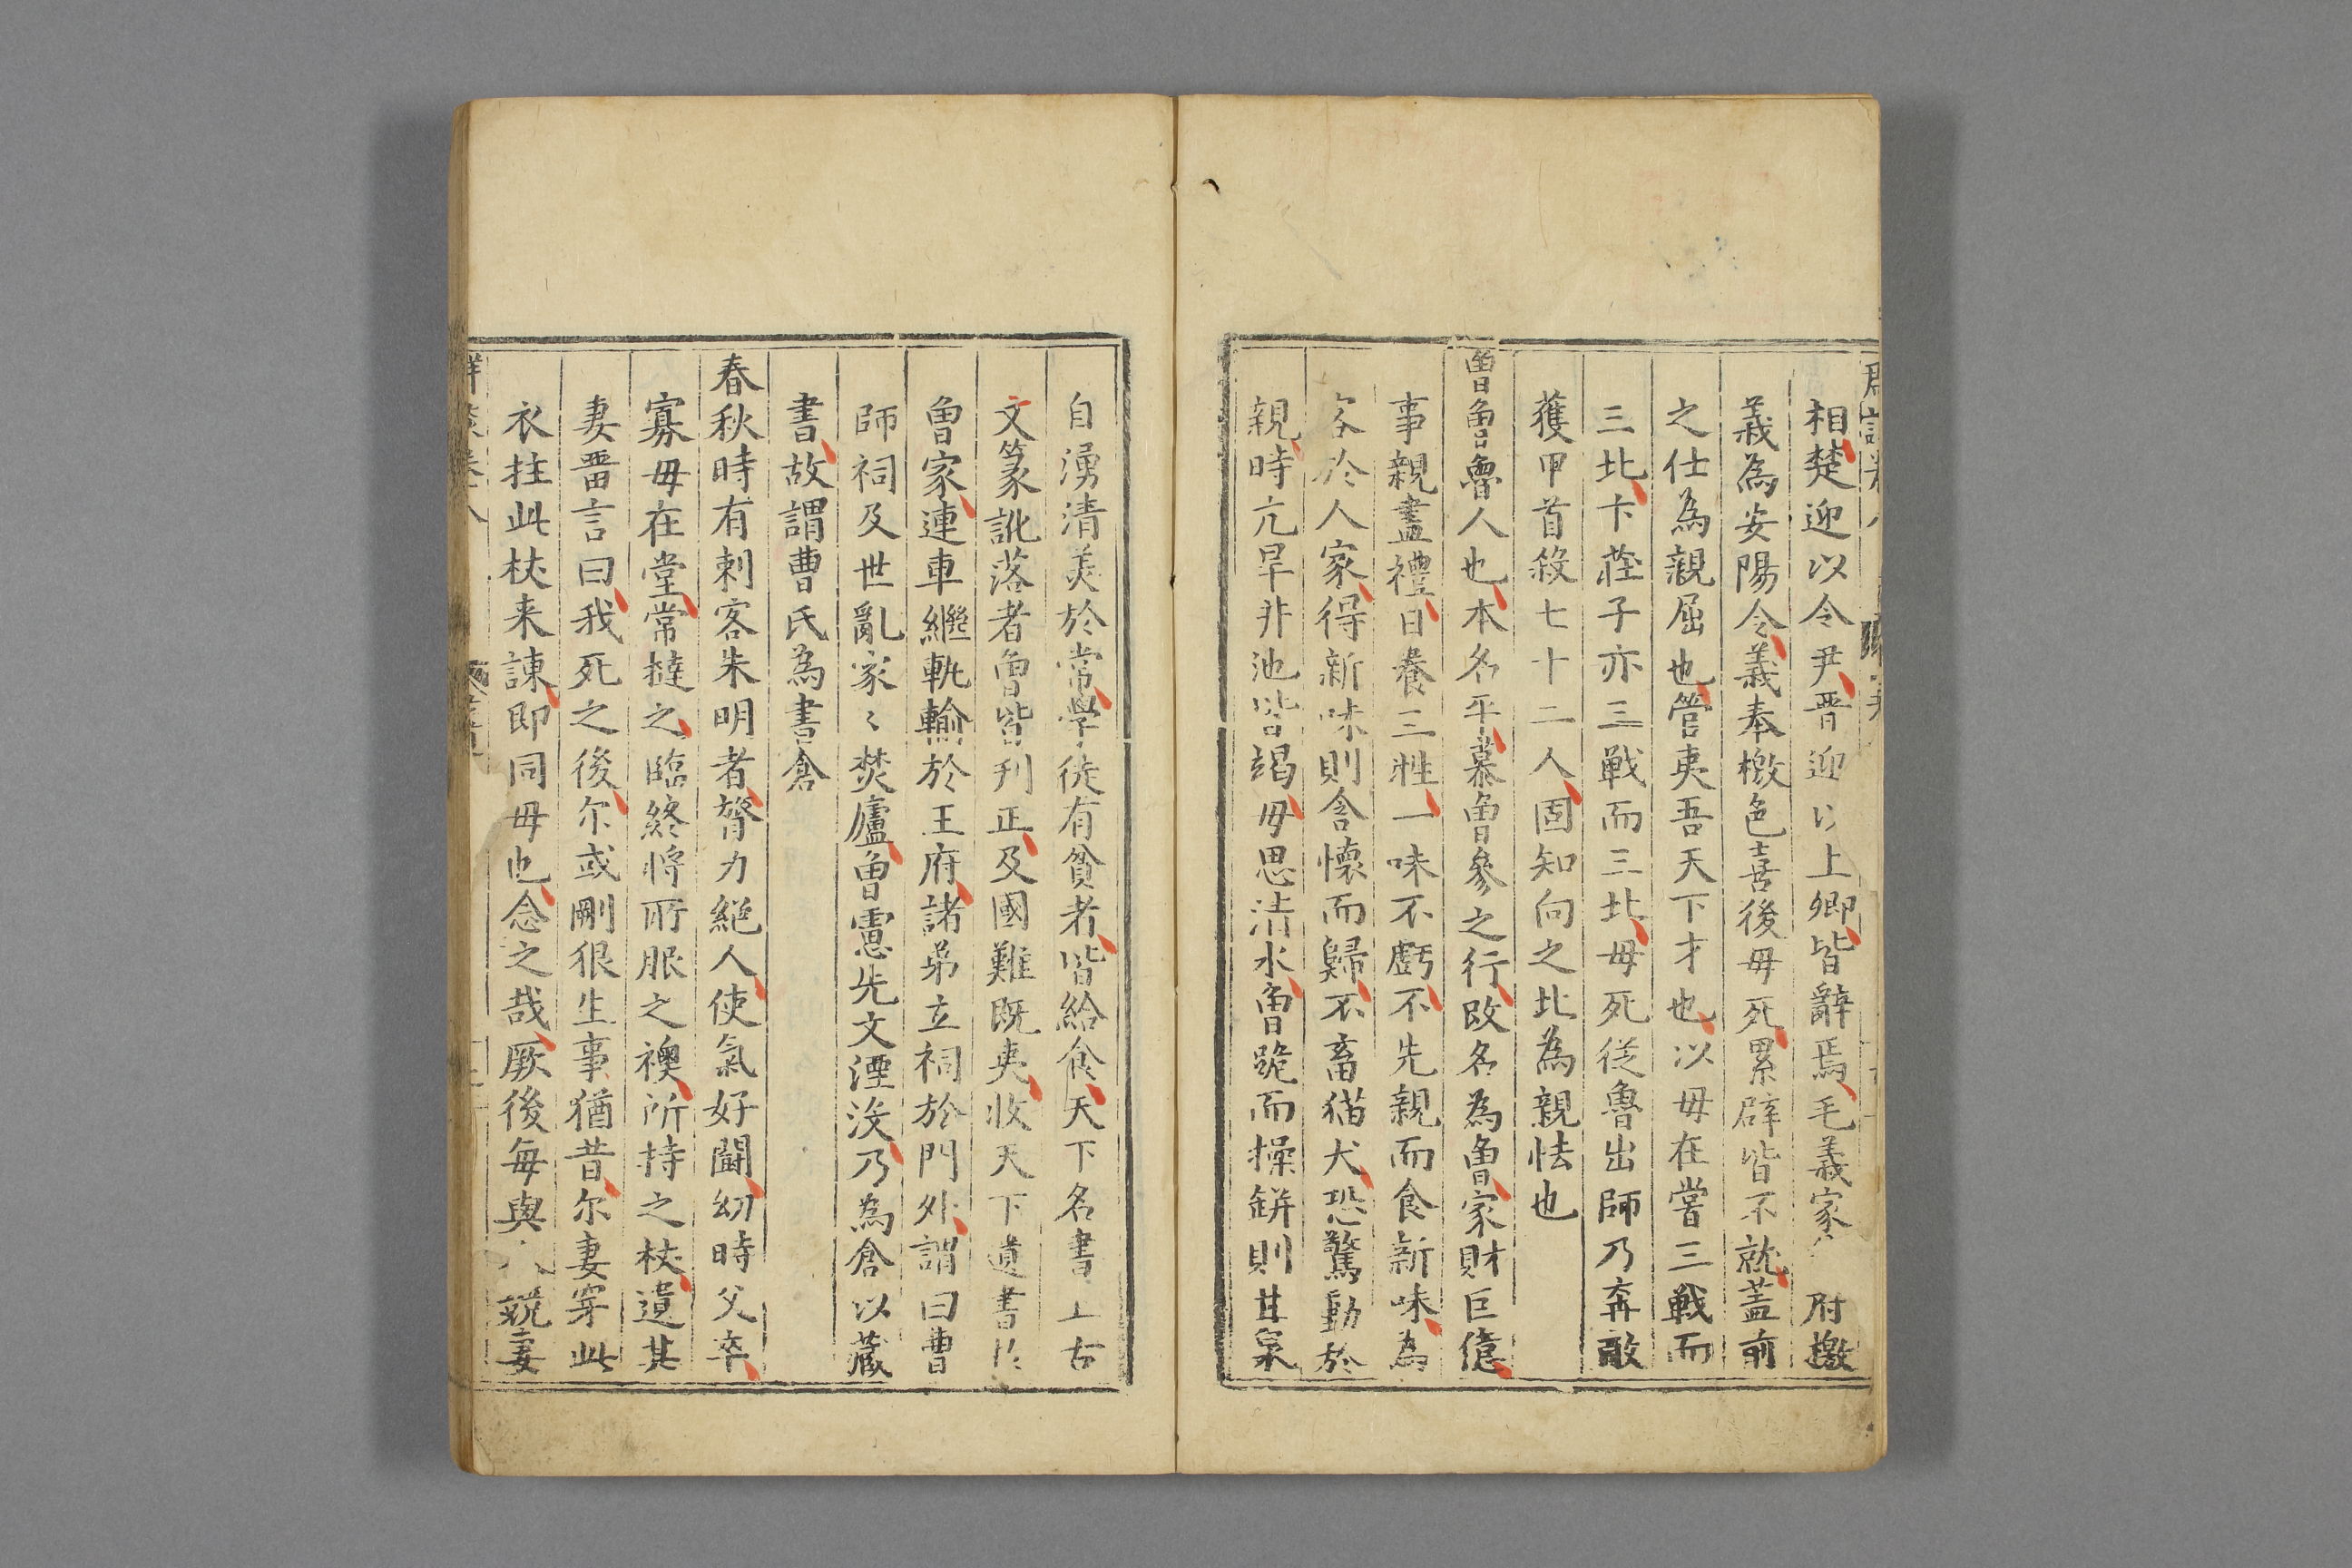 相楚迎以令尹晋迎以上卿皆辭焉毛義家 府檄
義為安陽令義奉檄色喜後毋死累辟皆不就盖前
之仕為親屈也管夷吾天下才也以毋在嘗三戰而
三北卞莊子亦三戰而三北毋死從魯出師乃奔敵
獲甲首殺七十二人固知向之北為親怯也
曺曾魯人也本名平慕曾參之行改名為曾家財巨億
事親盡禮日養三牲一味不虧不先親而食新味為
客於人家得新味則含懷而歸不畜猫犬恐驚動於
親時亢旱井池皆竭毋思清水曾跪而操缾則甘泉
自湧清美於常學徒有貧者皆給食天下名書上古
文篆訛落者曾皆刊正及國難既夷收天下遺書於
曾家連車繼軌輸於王府諸弟立祠於門外謂曰曹
師祠及世亂家〻焚廬曾慮先文湮沒乃為倉以藏
書故謂曹氏為書倉
春秋時有刺客朱明者膂力絕人使氣好鬪幼時父卒
寡毋在堂常撻之臨終將所服之襖所持之杖遺其
妻晋言曰我死之後尔或剛狠生事猶昔尔妻穿此
衣拄此杖来諫即同毋也念之哉厥後每與人競妻